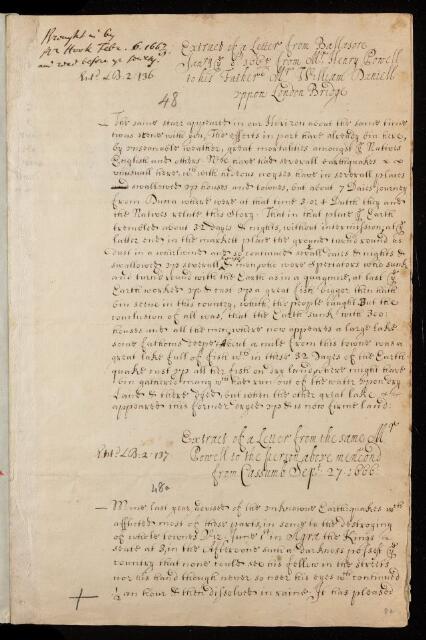 Brought in by
Mr Hook Febr. 6. 1667
and read before ye
Entd LB. 2. 136
Extract of a Letter from Ballasore
from Mr Henry Powell
to his Father Mr William Daniell
uppon London Bridge
48
The same starr appeared in our Horizon about the same time
was seene with you, The effects in part have already bin here,
by unseasonable weather, great mortalities amongst ye Natives
English and others. Wee have had severall earthquakes
unusuall here, wch with hideous noyses have in severall places
swallowed up houses and townes, but about 7 Daies journey
from Dacca where were at that time 3 or 4 Dutch they and
the Natives relate this story. That in that place ye Earth
trembled about 32 dayes & nights, without intermission, at ye
latter end in the markett place the ground turnd round as
dust in a whirlewind and so continued severall daies & nights &
swallowed up severall men who were spectators who sunk
and turnd round with the Earth as in a quagmire, at last ye
Earth worked up & cast up a great fish bigger then hath
bin seene in this country, which the people caught But the
conclusion of all was, that the Earth sunk with 300
houses and all the men, where now appeares a large lake
some fathoms deepe. About a mile from this towne was a
great lake full of fish wch in these 32 Dayes of the Earth
quake cast up all her fish on dry land, where might have
bin gathered many wch had run out of the water upon dry
Land & there dyed, but when the other great lake
appeared this former dryed up & is now firme land.
Extract of a Letter from the same Mr
Powell to the person above menconed
from Cassumb Sept. 27. 1666
Entd LB. 2. 137
48a
Mine last year advised of the unknowne Earthquakes wch
afflicted most of these parts, in some to the destroying
of whole townes June 1st in Agra the Kings
seate at 3 in the Afternoone such a darkness possest ye
country that none could see his fellow in the streets
nor his hand though never so neer his eyes wch continued
½ an hour & then dissolved in raine. It has pleased